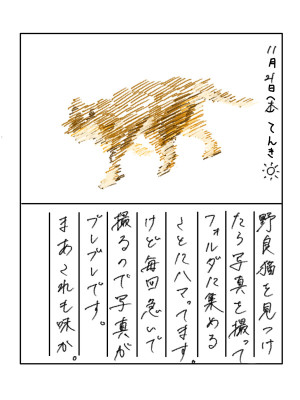 11月21日(木)てんき
野良猫を見つけ
たら写真を撮って
フォルダに集める
ことにハマってます。
けど毎回急いで
撮るので写真が
ブレブレです。
まあこれも味か。